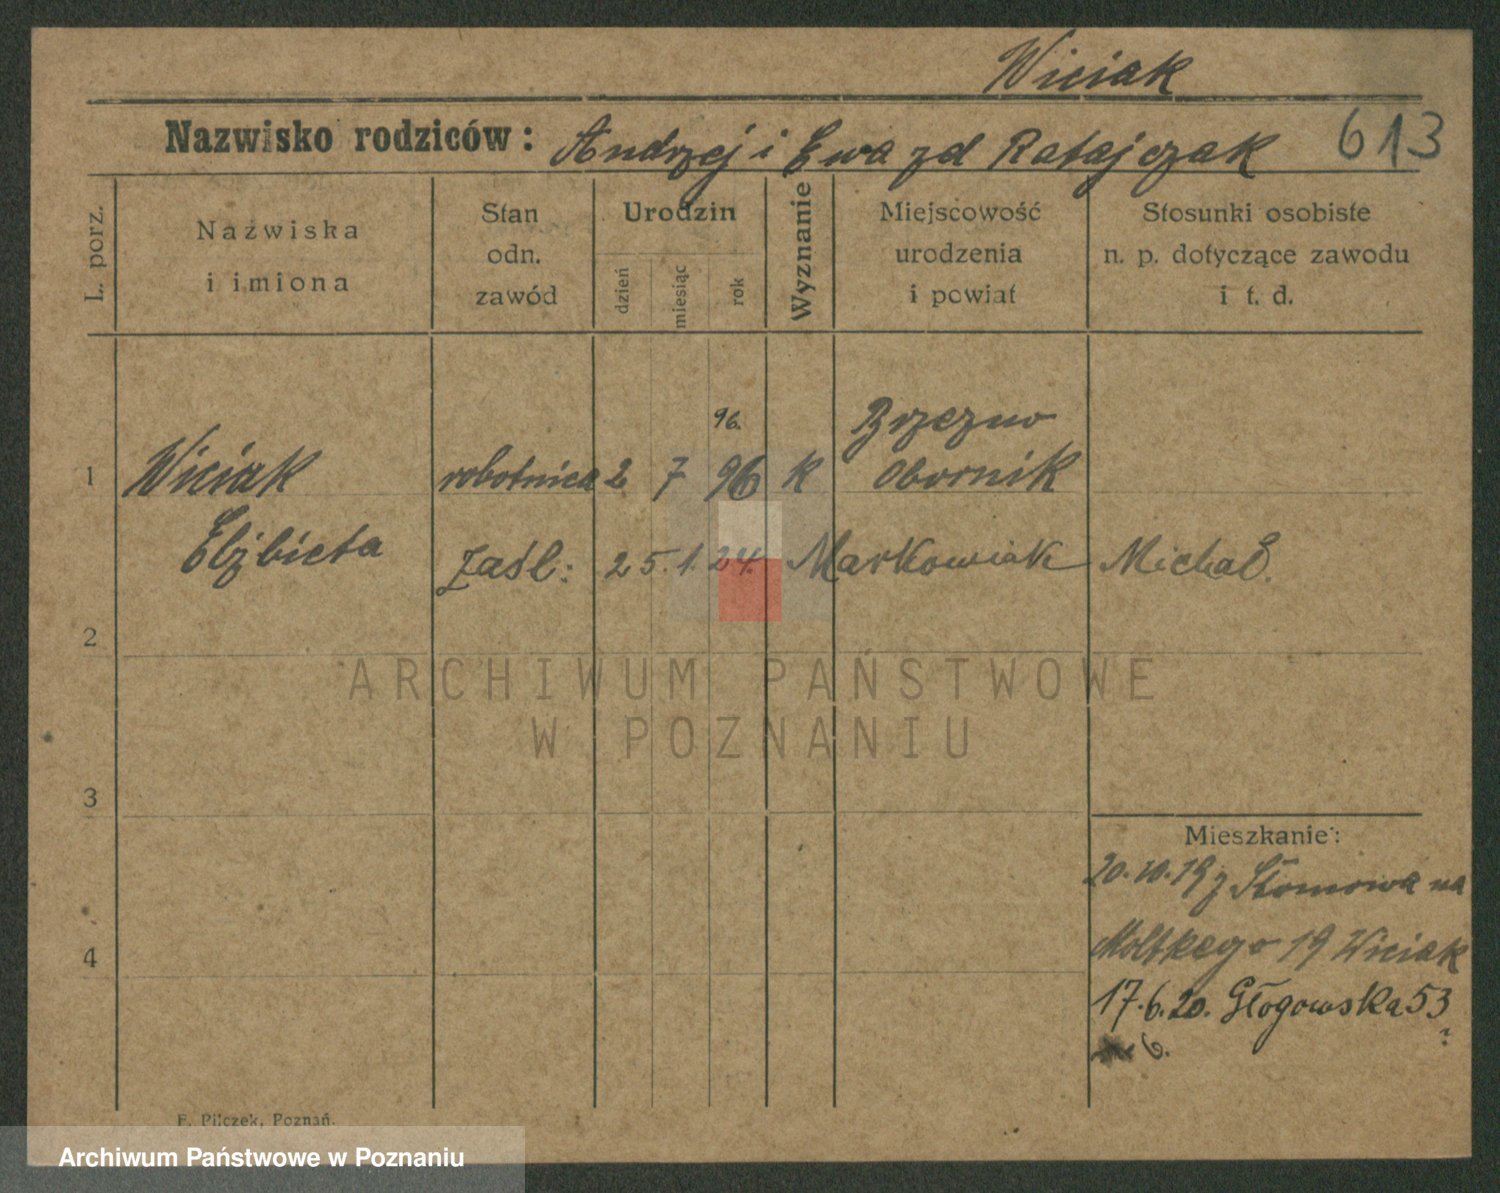 Wiciak
Nazwisko rodziców: Andrzej i Ewa zd Ratajczak 613
L. porz.
Nazwiska
i imiona
Stan
odn.
zawód
Urodzin
dzień
miesiąc
rok
Wyznanie
Miejscowość
urodzenia
i powiat
Stosunki osobiste
n. p. dotyczące zawodu
i t. d.
96.
Brzezno
1 Wiciak robotnica 2 7 96 k Obornik
Elżbieta zaśl: 25.1.24. Markowiak Michał.
2
ARCHIWUM PAŃSTWOWE
W POZNANIU
3
Mieszkanie:
20.10.19 z Słomowa na
4 Moltkego 19 Wiciak
17.6.20. Głogowska 53
6.
F. Pilczek, Poznań.
Archiwum Państwowe w Poznaniu